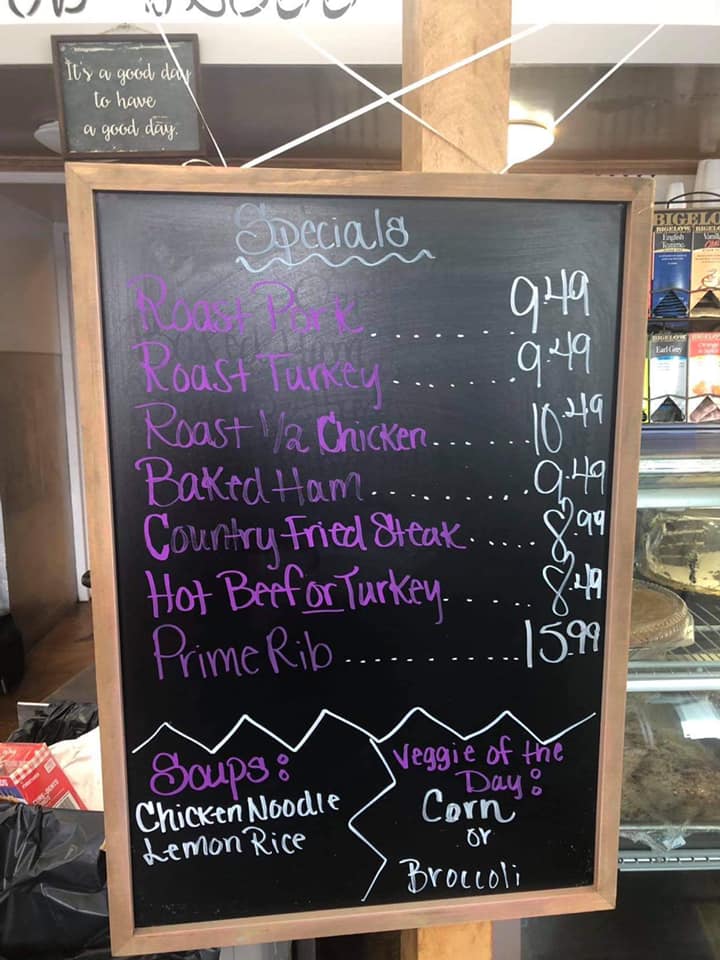 It's a good day
to have
a good day.
Specials
Roast Pork ........ 9.49
Roast Turkey ....... 9.49
Roast 1/2 Chicken ...... 10.49
Baked Ham .......... 9.49
Country Fried Steak ..... 8.99
Hot Beef or Turkey ...... 8.49
Prime Rib ........... 15.99
Soups:
Chicken Noodle
Lemon Rice
Veggie of the
Day:
Corn
or
Broccoli
BIGELOW
BIGELOW
English
Teatime
Earl Grey